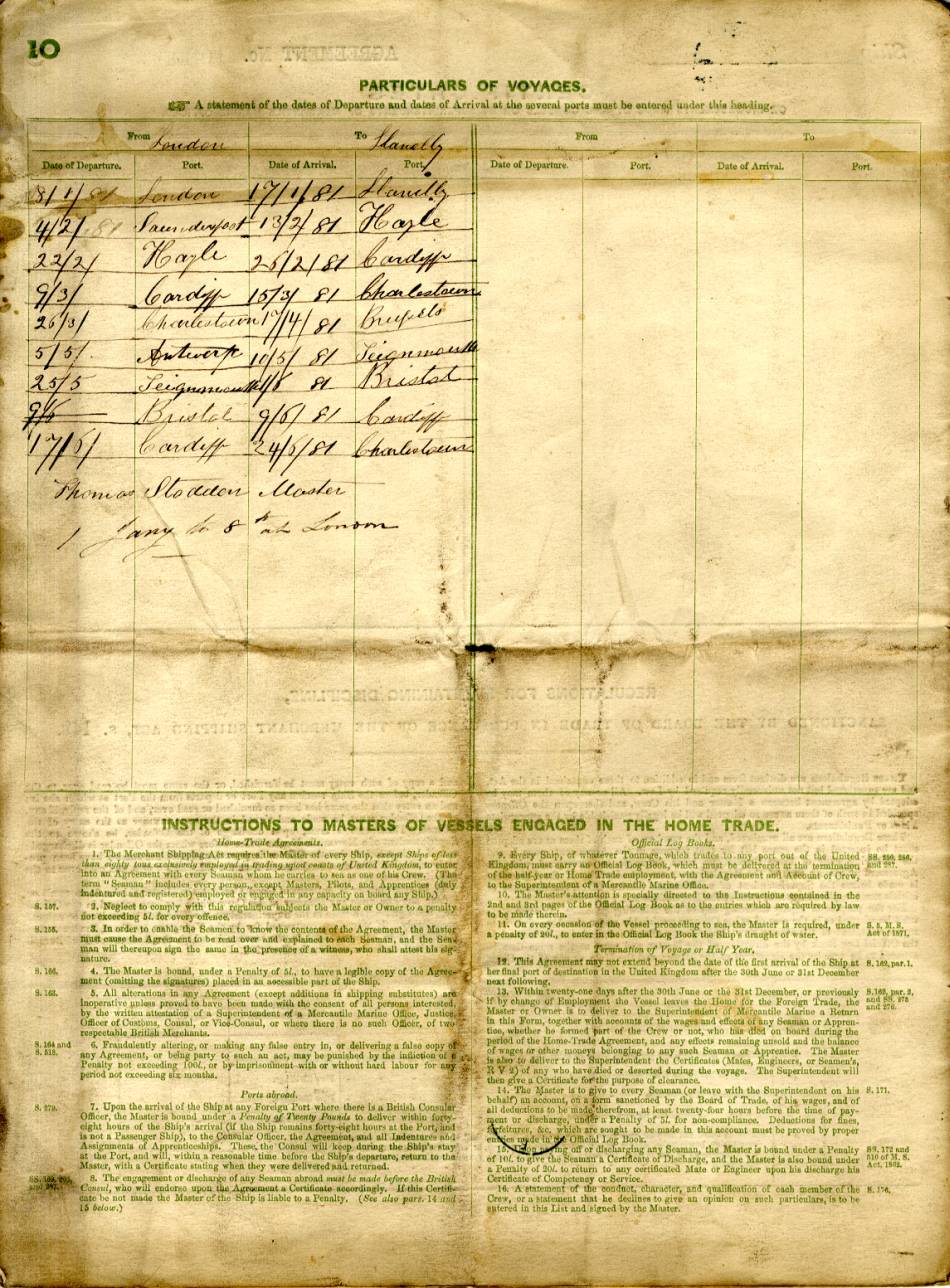 10
PARTICULARS OF VOYAGES.
A statement of the dates of Departure and dates of Arrival at the several ports must be entered under this heading.
From London To Llanelly From To
Date of Departure. Port. Date of Arrival. Port. Date of Departure. Port. Date of Arrival. Port.
8/1/81 London 17/1/81 Llanelly
4/2/81 Saundersfoot 13/2/81 Hayle
22/2/ Hayle 26/2/81 Cardiff
9/3/ Cardiff 15/3/81 Charlestown
26/3/ Charlestown 17/4/81 Brussels
5/5/ Antwerp 10/5/81 Teignmouth
25/5 Teignmouth 81 Bristol
9/6 Bristol 9/6/81 Cardiff
17/6/ Cardiff 24/6/81 Charlestown
Thomas Stoddon Master
1 Jany to 8th at London
INSTRUCTIONS TO MASTERS OF VESSELS ENGAGED IN THE HOME TRADE.
Home-Trade Agreements.
1. The Merchant Shipping Acts requires the Master of every Ship, except Ships of less
than eighty tons exclusively employed in trading upon coasts of United Kingdom, to enter
into an Agreement with every Seaman whom he carries to sea as one of his Crew. (The
term "Seaman" includes every person, except Masters, Pilots, and Apprentices (duly
indentured and registered) employed or engaged in any capacity on board any Ship.)
S. 157. 2. Neglect to comply with this regulation subjects the Master or Owner to a penalty
not exceeding 5l. for every offence.
S. 155. 3. In order to enable the Seamen to know the contents of the Agreement, the Master
must cause the Agreement to be read over and explained to each Seaman, and the Sea-
man will thereupon sign the same in the presence of a witness, who shall attest his sig-
nature.
S. 166. 4. The Master is bound, under a Penalty of 5l., to have a legible copy of the Agree-
ment (omitting the signatures) placed in an accessible part of the Ship.
S. 163. 5. All alterations in any Agreement (except additions in shipping substitutes) are
inoperative unless proved to have been made with the consent of all persons interested,
by the written attestation of a Superintendent of a Mercantile Marine Office, Justice,
Officer of Customs, Consul, or Vice-Consul, or where there is no such Officer, of two
respectable British Merchants.
S. 164 and S. 518. 6. Fraudulently altering, or making any false entry in, or delivering a false copy of
any Agreement, or being party to such an act, may be punished by the infliction of a
Penalty not exceeding 100l., or by imprisonment with or without hard labour for any
period not exceeding six months.
Ports abroad.
S. 279. 7. Upon the arrival of the Ship at any Foreign Port where there is a British Consular
Officer, the Master is bound under a Penalty of Twenty Pounds to deliver within forty-
eight hours of the Ship's arrival (if the Ship remains forty-eight hours at the Port, and
is not a Passenger Ship), to the Consular Officer, the Agreement, and all Indentures and
Assignments of Apprenticeships. These, the Consul will keep during the Ship's stay
at the Port, and will, within a reasonable time before the Ship's departure, return to the
Master, with a Certificate stating when they were delivered and returned.
8. The engagement or discharge of any Seaman abroad must be made before the British
Consul, who will endorse upon the Agreement a Certificate accordingly. If this Certifi-
cate be not made the Master of the Ship is liable to a Penalty. (See also pars. 14 and
15 below.)
Official Log Books.
9. Every Ship, of whatever Tonnage, which trades to any port out of the United
Kingdom, must carry an Official Log Book, which must be delivered at the termination
of the half-year or Home Trade employment, with the Agreement and Account of Crew,
to the Superintendent of a Mercantile Marine Office.
10. The Master's attention is specially directed to the Instructions contained in the
2nd and 3rd pages of the Official Log Book as to the entries which are required by law
to be made therein.
11. On every occasion of the Vessel proceeding to sea, the Master is required, under
a penalty of 20l., to enter in the Official Log Book the Ship's draught of water. S. 5, M. S. Act of 1871.
Termination of Voyage or Half Year.
12. This Agreement may not extend beyond the date of the first arrival of the Ship at
her final port of destination in the United Kingdom after the 30th June or 31st December
next following. S. 162, par. 1.
13. Within twenty-one days after the 30th June or the 31st December, or previously
if by change of Employment the Vessel leaves the Home for the Foreign Trade, the
Master or Owner is to deliver to the Superintendent of Mercantile Marine a Return
in this Form, together with accounts of the wages and effects of any Seaman or Appren-
tice, whether he formed part of the Crew or not, who has died on board during the
period of the Home-Trade Agreement, and any effects remaining unsold and the balance
of wages or other moneys belonging to any such Seaman or Apprentice. The Master
is also to deliver to the Superintendent the Certificates (Mates, Engineers, or Seamen's,
R V 2) of any who have died or deserted during the voyage. The Superintendent will
then give a Certificate for the purpose of clearance.
14. The Master is to give to every Seaman (or leave with the Superintendent on his
behalf) an account, on a form sanctioned by the Board of Trade, of his wages, and of
all deductions to be made therefrom, at least twenty-four hours before the time of pay-
ment or discharge, under a Penalty of 5l. for non-compliance. Deductions for fines,
forfeitures, &c., which are sought to be made in this account must be proved by proper
entries made in the Official Log Book. S. 171.
15. Upon paying off or discharging any Seaman, the Master is bound under a Penalty
of 10l. to give the Seaman a Certificate of Discharge, and the Master is also bound under
a Penalty of 20l. to return to any certificated Mate or Engineer upon his discharge his
Certificate of Competency or Service.
16. A statement of the conduct, character, and qualification of each member of the
Crew, or a statement that he declines to give an opinion on such particulars, is to be
entered in this List and signed by the Master.